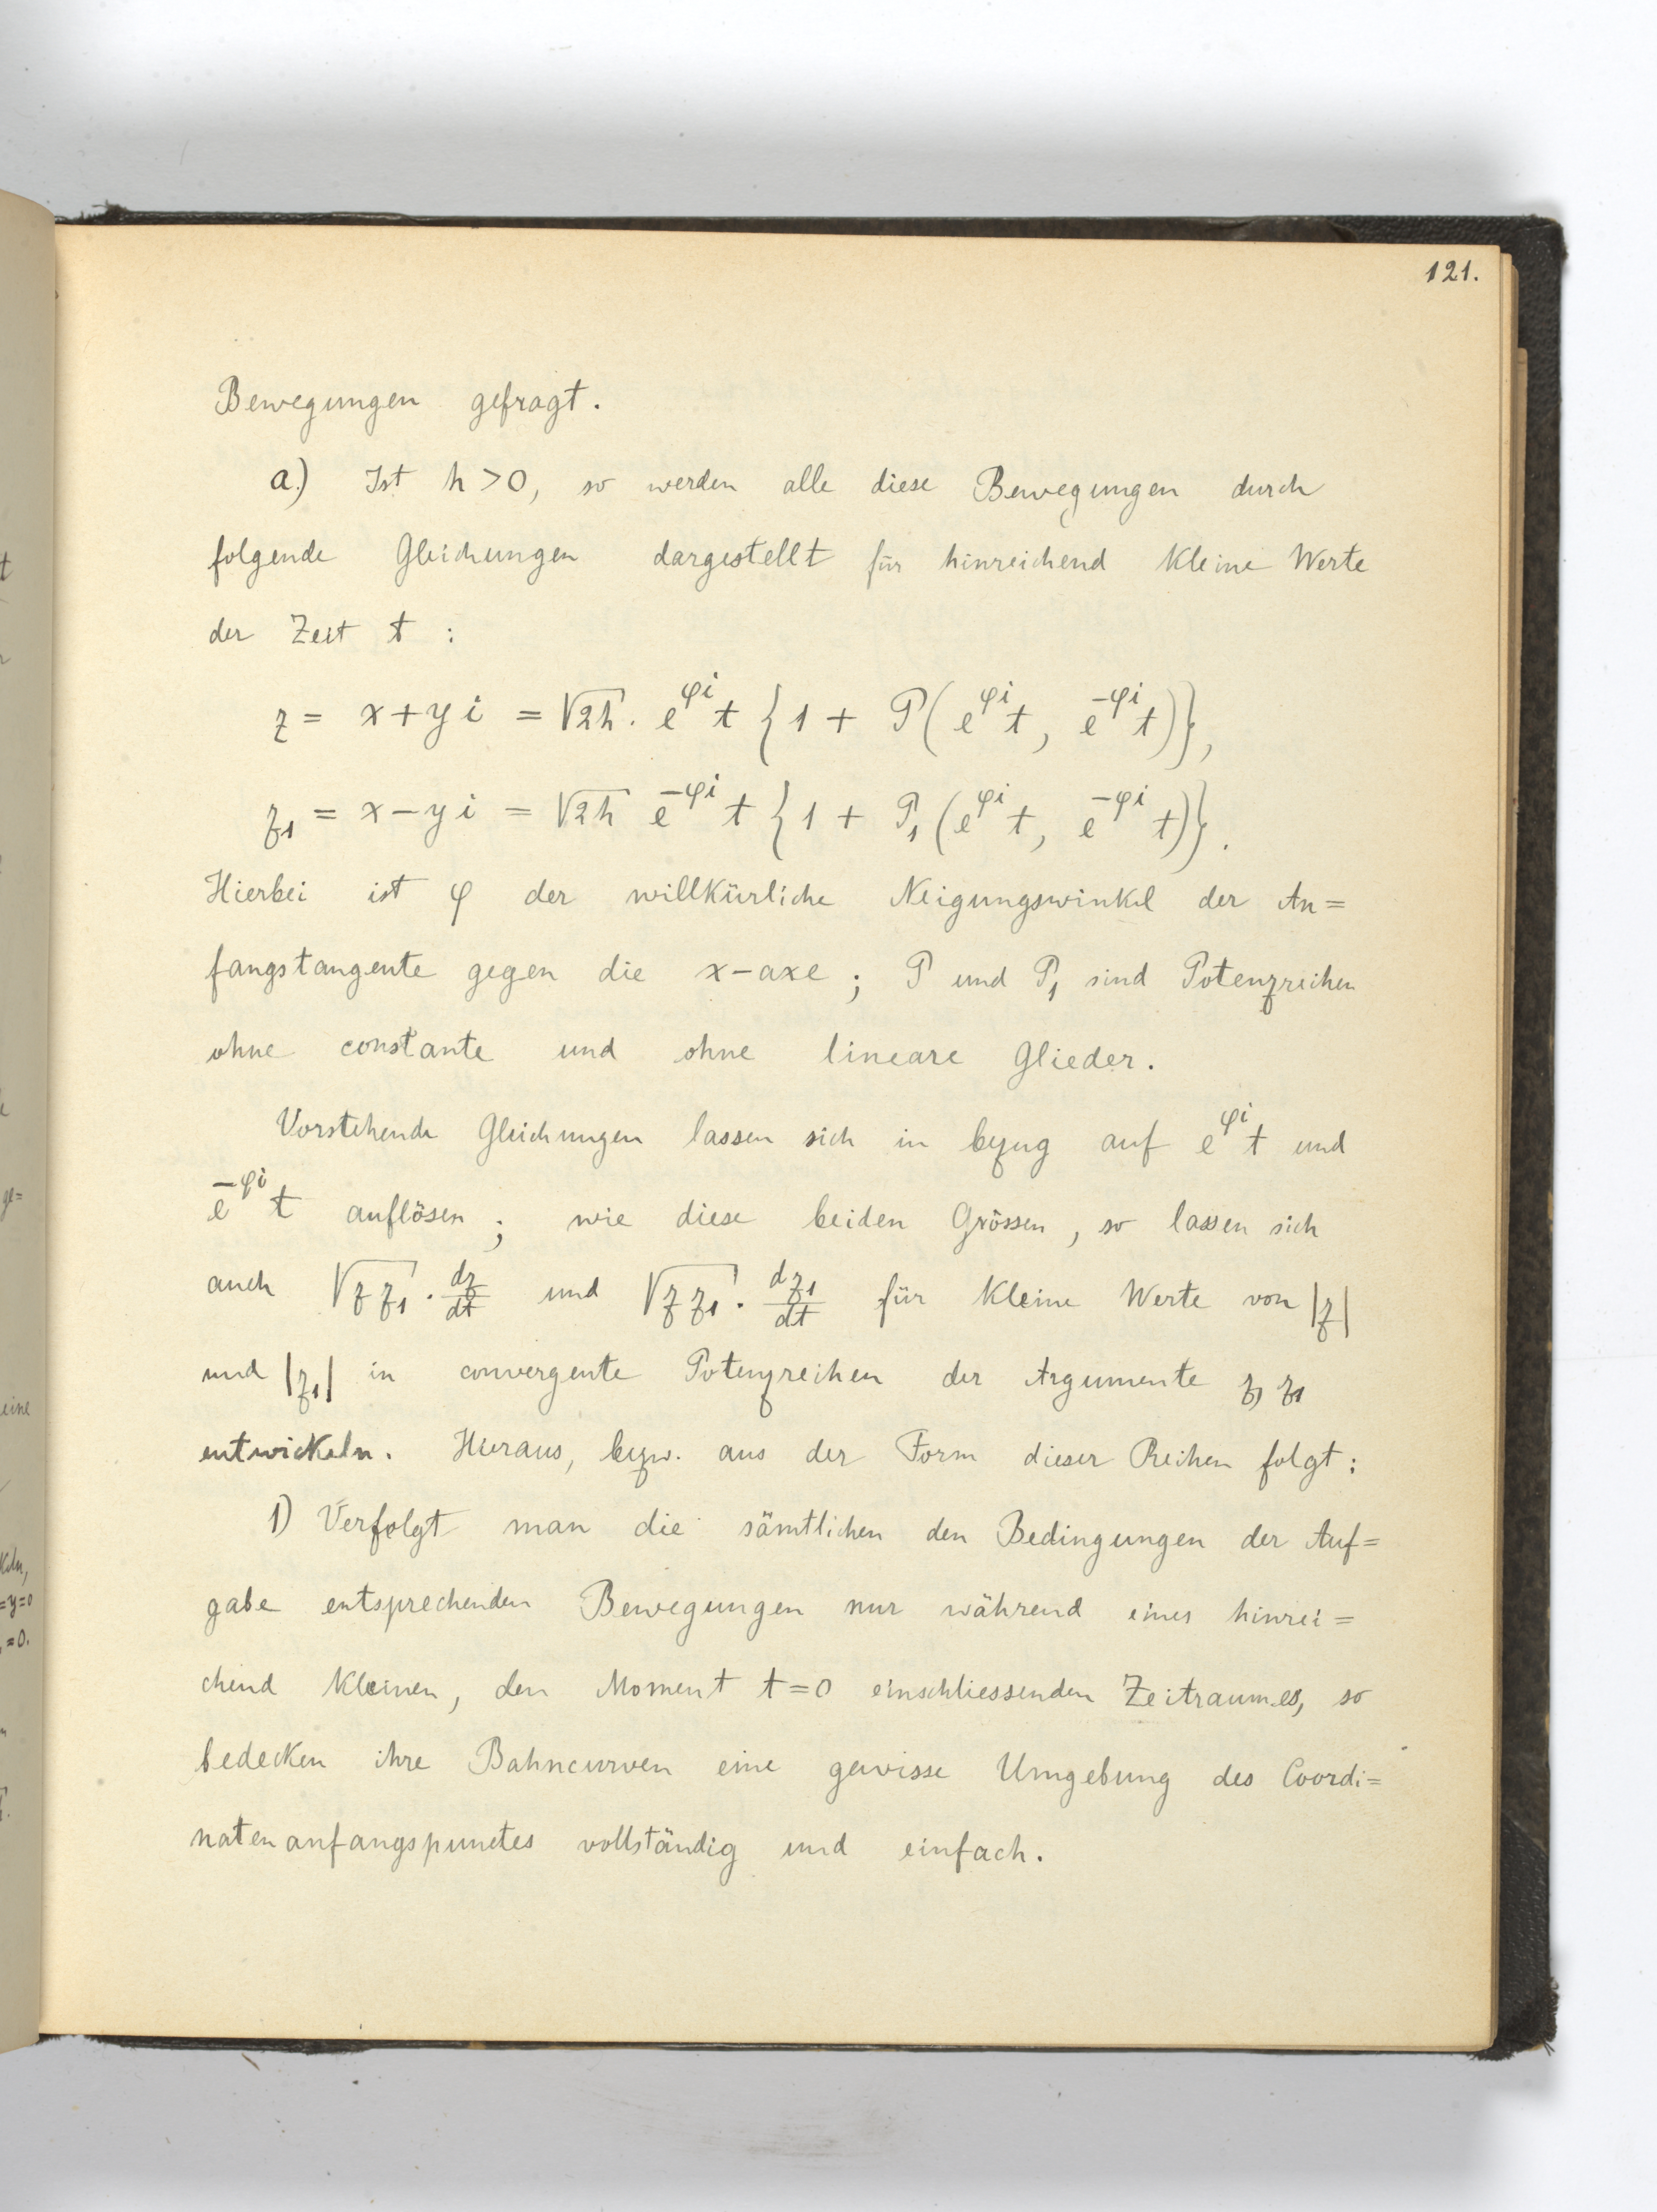 121.
Bewegungen gefragt.
a.) Ist h > 0, so werden alle diese Bewegungen durch
folgende Gleichungen dargestellt für hinreichend kleine Werte
der Zeit t :
z = x + y i = √2h · e^{φi} t { 1 + P ( e^{φi} t, e^{-φi} t ) },
z₁ = x - y i = √2h e^{-φi} t { 1 + P₁ ( e^{φi} t, e^{-φi} t ) }.
Hierbei ist φ der willkürliche Neigungswinkel der An=
fangstangente gegen die x-axe ; P und P₁ sind Potenzreihen
ohne constante und ohne lineare Glieder.
Vorstehende Gleichungen lassen sich in bezug auf e^{φi} t und
e^{-φi} t auflösen ; wie diese beiden Grössen, so lassen sich
auch √z z₁ · dz/dt und √z z₁ · dz₁/dt für kleine Werte von |z|
und |z₁| in convergente Potenzreihen der Argumente z, z₁
entwickeln. Hieraus, bezw. aus der Form dieser Reihen folgt :
1) Verfolgt man die sämtlichen den Bedingungen der Auf=
gabe entsprechenden Bewegungen nur während eines hinrei=
chend kleinen, den Moment t = 0 einschliessenden Zeitraumes, so
bedecken ihre Bahncurven eine gewisse Umgebung des Coordi=
natenanfangspunctes vollständig und einfach.
t
ge=
eine
keln,
=y=0
=0.